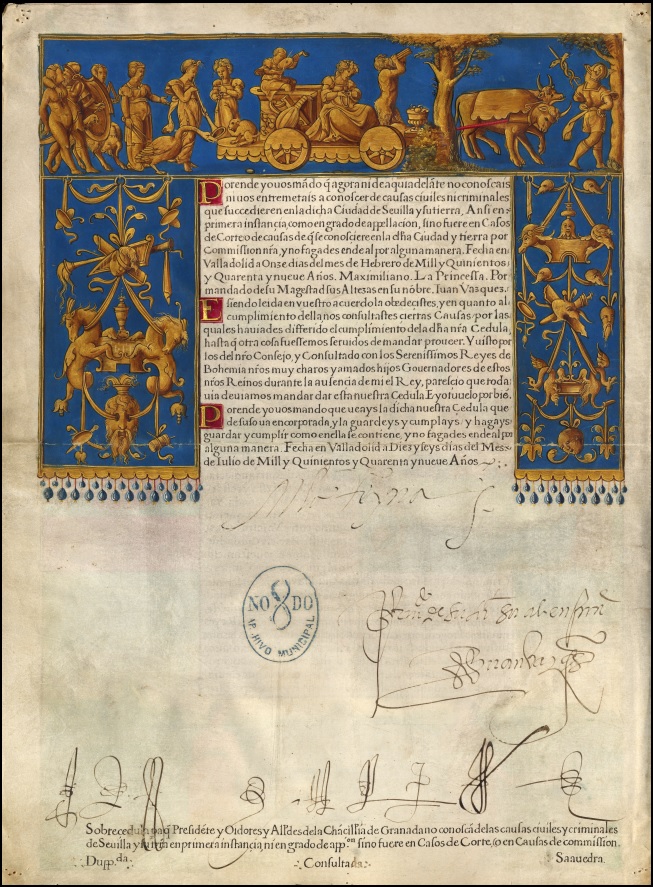 Porende yo vos mãdo q̃ agora ni de aqui adelãte no conoscais
ni vos entremetais a conoscer de causas çiviles ni criminales
que succedieren en la dicha Ciudad de Sevilla y su tierra. Ansi en
primera instançia, como en grado de appellaçion, sino fuere en Casos
de Corte o de causas de q̃ se conosciere en la dħa Ciudad y tierra por
Commission nr̃a, y no fagades ende al por alguna manera. Fecha en
Valladolid a Onze dias del mes de Hebrero de Mill y Quinientos
y Quarenta y nueve Años. Maximiliano. La Princessa. Por
mandado de su Magestad sus Altesas en su nõbre. Iuan Vasques.
E siendo leida en vuestro acuerdo la obedecistes, y en quanto al
cumplimiento della nos consultastes ciertas Causas por las
quales haviades differido el cumplimiento de la dħa nr̃a Cedula,
hasta q̃ otra cosa fuessemos servidos de mandar proveer. Y visto por
los del nr̃o Consejo, y Consultado con los Serenissimos Reyes de
Bohemia nr̃os muy charos y amados hijos Governadores de estos
nr̃os Reinos durante la ausencia de mi el Rey, parescio que toda
via deviamos mandar dar esta nuestra Cedula. E yo tuvelo por biẽ.
Porende yo vos mando que veays la dicha nuestra Cedula que
de suso va encorporada, y la guardeys y cumplays y hagays
guardar y cumplir como en ella se contiene, y no fagades ende al por
alguna manera. Fecha en Valladolid a Diez y seys dias del Mes
de Iulio de Mill y Quinientos y Quarenta y nueve Años
NO 8 DO
ARCHIVO MUNICIPAL
Sobrecedula paq̃ Presidẽte y Oidores y Allr̃des de la Chãcill̃ia de Granada no conoscã de las causas civiles y criminales
de Sevilla y su tr̃ra en primera instancia ni en grado de app.on sino fuere en Casos de Corte, o en Causas de commission.
Dupp.da. Consultada. Saavedra.